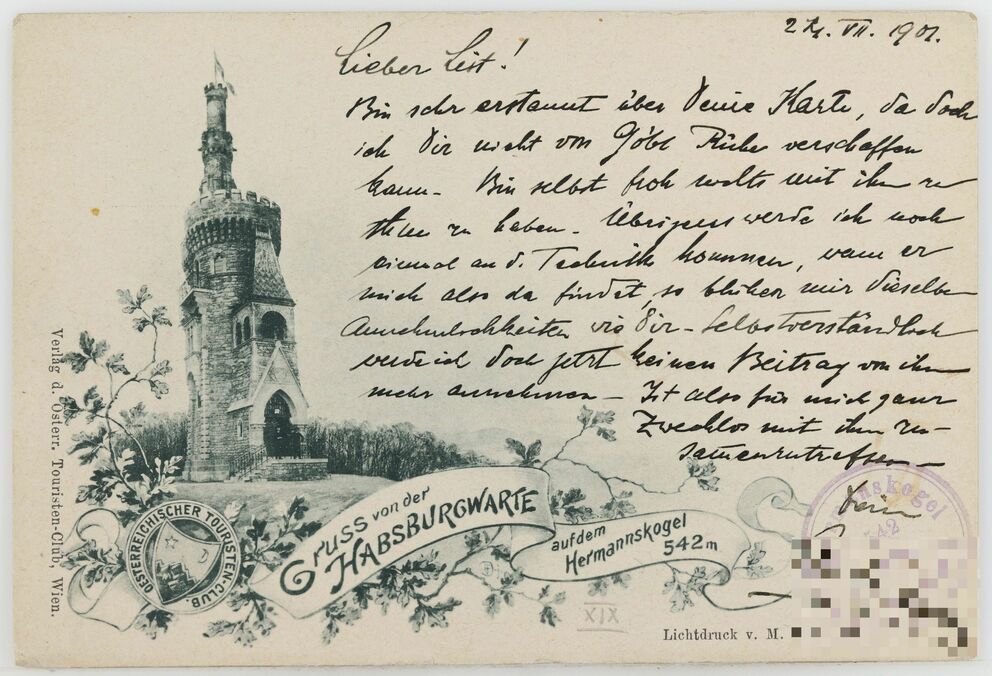 24. VII. 1901.
Lieber List!
Bin sehr erstaunt über Deine Karte, da doch
ich Dir nicht von Göbl Ruhe verschaffen
kann – Bin selbst froh nichts mit ihm zu
thun zu haben – Übrigens werde ich noch
einmal an d. Technik kommen, wenn er
mich also da findet, so blühen mir dieselben
Annehmlichkeiten wie Dir – Selbstverständlich
werde ich doch jetzt keinen Beitrag von ihm
mehr annehmen – Ist also für mich ganz
Zwecklos mit ihm zu-
sammenzutreffen –
Dein
Gruss von der
HABSBURGWARTE
auf dem
Hermannskogel
542 m
OESTERREICHISCHER TOURISTEN-CLUB.
Verlag d. Österr. Touristen-Club, Wien.
XIX
Lichtdruck v. M.
nnskogel
542